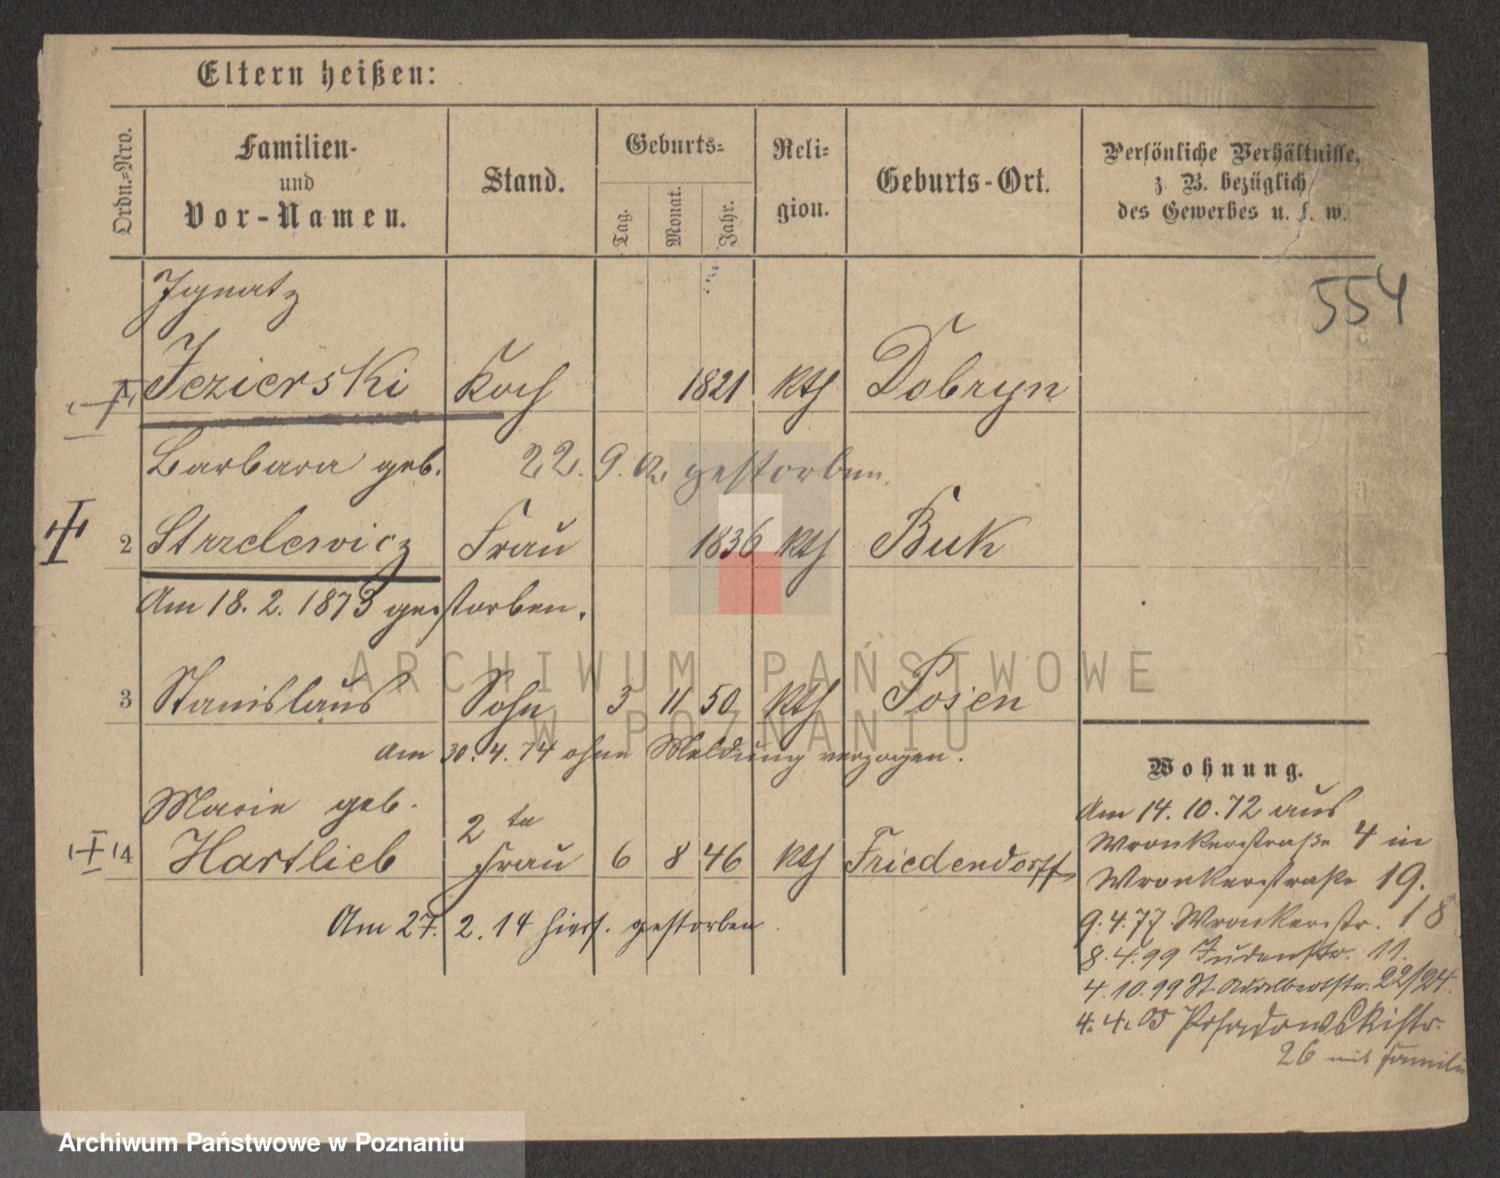 Eltern heißen:
Ordn.-Nro.
Familien-
und
Vor-Namen.
Stand.
Geburts-
Tag.
Monat.
Jahr.
Reli-
gion.
Geburts-Ort.
Persönliche Verhältnisse,
z. B. bezüglich
des Gewerbes u. s. w.
554
Ignatz
Jezierski Koch 1821 kth Dobryn
22. 9. 02. gestorben.
Barbara geb.
2 Strzelewicz Frau 1836 kth Buk
Am 18. 2. 1873 gestorben.
3 Stanislaus Sohn 3 11 50 kth Posen
Am 30. 4. 74 ohne Meldung verzogen.
Marie geb.
4 Hartlieb 2te Frau 6 8 46 kth Friedendorff
Am 27. 2. 14 hier gestorben.
Wohnung.
Am 14. 10. 72 aus
Wronkerstraße 4 in
Wronkerstraße 19.
9. 4. 77 Wronkerstr. 18
8. 4. 99 Judenstr. 11.
4. 10. 99 St Adalbertstr. 22/24.
4. 4. 05 Posadowskistr.
26 mit Familie
ARCHIWUM PAŃSTWOWE
W POZNANIU
Archiwum Państwowe w Poznaniu